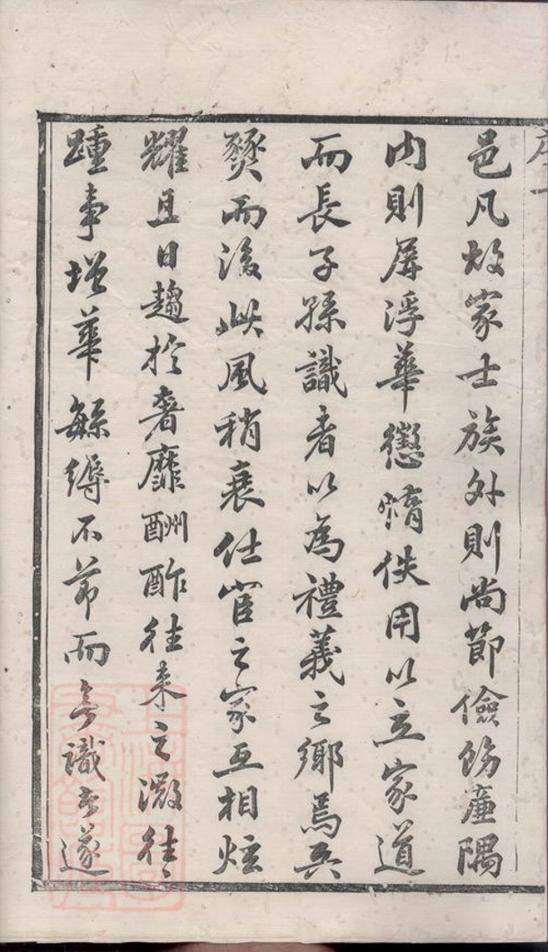 邑凡故家士族外則尚節儉飭廉隅
内則屏浮華懲惰佚用以立家道
而長子孫識者以為禮義之鄉焉兵
燹而後此風稍衰仕宦之家互相炫
耀且日趨於奢靡酬酢往来之澂往〻
踵事增華繇縟不節而無識者遂